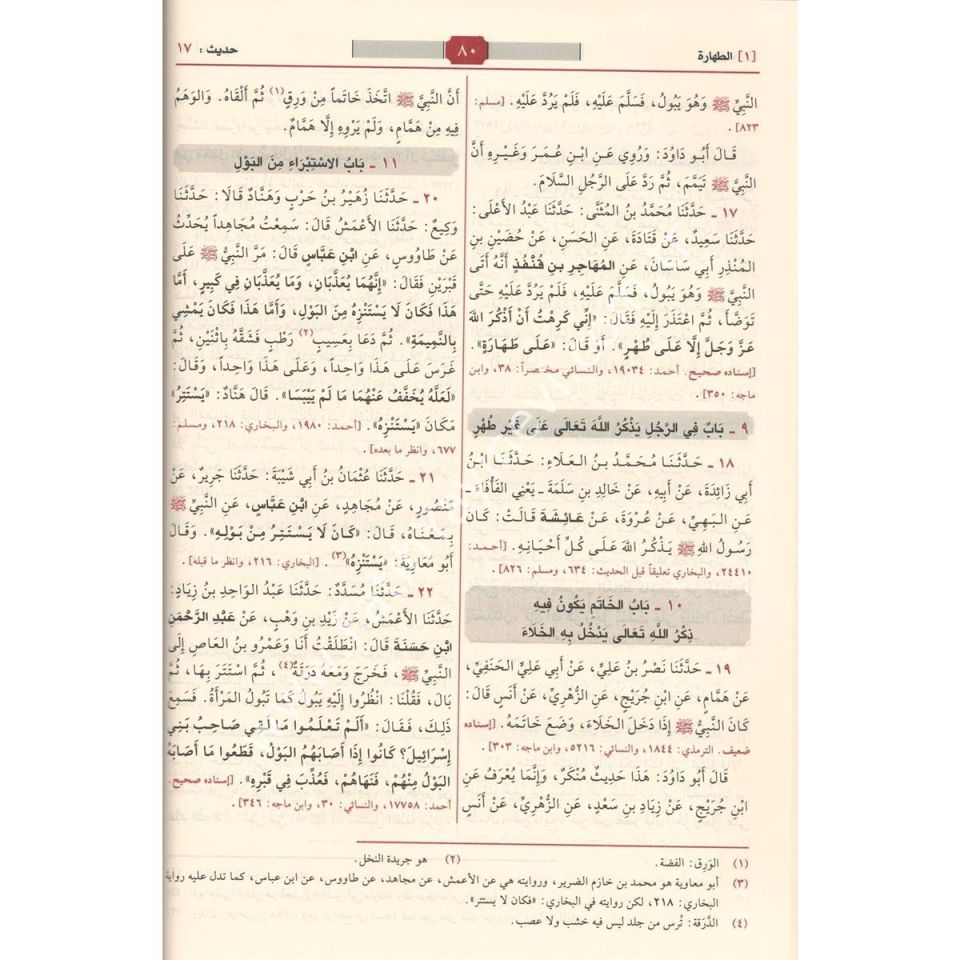 [١] الطهارة
٨٠
حديث: ١٧
النَّبِيِّ ﷺ وَهُوَ يَبُولُ، فَسَلَّمَ عَلَيْهِ، فَلَمْ يَرُدَّ عَلَيْهِ. [مسلم:
٨٢٣].
قَالَ أَبُو دَاوُدَ: وَرُوِيَ عَنِ ابْنِ عُمَرَ وَغَيْرِهِ أَنَّ
النَّبِيَّ ﷺ تَيَمَّمَ، ثُمَّ رَدَّ عَلَى الرَّجُلِ السَّلَامَ.
١٧ ـ حَدَّثَنَا مُحَمَّدُ بنُ المُثَنَّى: حَدَّثَنَا عَبْدُ الأَعْلَى:
حَدَّثَنَا سَعِيدٌ، عَنْ قَتَادَةَ، عَنِ الحَسَنِ، عَنْ حُضَيْنِ بنِ
المُنْذِرِ أَبِي سَاسَانَ، عَنِ المُهَاجِرِ بنِ قُنْفُذٍ أَنَّهُ أَتَى
النَّبِيَّ ﷺ وَهُوَ يَبُولُ، فَسَلَّمَ عَلَيْهِ، فَلَمْ يَرُدَّ عَلَيْهِ حَتَّى
تَوَضَّأَ، ثُمَّ اعْتَذَرَ إِلَيْهِ فَقَالَ: «إِنِّي كَرِهْتُ أَنْ أَذْكُرَ اللهَ
عَزَّ وَجَلَّ إِلَّا عَلَى طُهْرٍ». أَوْ قَالَ: «عَلَى طَهَارَةٍ».
[إسناده صحيح. أحمد: ١٩٠٣٤، والنسائي مختصراً: ٣٨، وابن
ماجه: ٣٥٠].
٩ ـ بَابٌ فِي الرَّجُلِ يَذْكُرُ اللهَ تَعَالَى عَلَى غَيْرِ طُهْرٍ
١٨ ـ حَدَّثَنَا مُحَمَّدُ بنُ العَلَاءِ: حَدَّثَنَا ابْنُ
أَبِي زَائِدَةَ، عَنْ أَبِيهِ، عَنْ خَالِدِ بنِ سَلَمَةَ ـ يَعْنِي الفَأْفَاءَ ـ
عَنِ البَهِيِّ، عَنْ عُرْوَةَ، عَنْ عَائِشَةَ قَالَتْ: كَانَ
رَسُولُ اللهِ ﷺ يَذْكُرُ اللهَ عَلَى كُلِّ أَحْيَانِهِ. [أحمد:
٢٤٤١٠، والبخاري تعليقاً قبل الحديث: ٦٣٤، ومسلم: ٨٢٦].
١٠ ـ بَابُ الخَاتَمِ يَكُونُ فِيهِ
ذِكْرُ اللهِ تَعَالَى يَدْخُلُ بِهِ الخَلَاءَ
١٩ ـ حَدَّثَنَا نَصْرُ بنُ عَلِيٍّ، عَنْ أَبِي عَلِيٍّ الحَنَفِيِّ،
عَنْ هَمَّامٍ، عَنِ ابْنِ جُرَيْجٍ، عَنِ الزُّهْرِيِّ، عَنْ أَنَسٍ قَالَ:
كَانَ النَّبِيُّ ﷺ إِذَا دَخَلَ الخَلَاءَ، وَضَعَ خَاتَمَهُ. [إسناده
ضعيف. الترمذي: ١٨٤٤، والنسائي: ٥٢١٦، وابن ماجه: ٣٠٣].
قَالَ أَبُو دَاوُدَ: هَذَا حَدِيثٌ مُنْكَرٌ، وَإِنَّمَا يُعْرَفُ عَنِ
ابْنِ جُرَيْجٍ، عَنْ زِيَادِ بنِ سَعْدٍ، عَنِ الزُّهْرِيِّ، عَنْ أَنَسٍ
أَنَّ النَّبِيَّ ﷺ اتَّخَذَ خَاتَماً مِنْ وَرِقٍ(١) ثُمَّ أَلْقَاهُ. وَالوَهَمُ
فِيهِ مِنْ هَمَّامٍ، وَلَمْ يَرْوِهِ إِلَّا هَمَّامٌ.
١١ ـ بَابُ الاسْتِبْرَاءِ مِنَ البَوْلِ
٢٠ ـ حَدَّثَنَا زُهَيْرُ بنُ حَرْبٍ وَهَنَّادٌ قَالَا: حَدَّثَنَا
وَكِيعٌ: حَدَّثَنَا الأَعْمَشُ قَالَ: سَمِعْتُ مُجَاهِداً يُحَدِّثُ
عَنْ طَاوُوسٍ، عَنِ ابْنِ عَبَّاسٍ قَالَ: مَرَّ النَّبِيُّ ﷺ عَلَى
قَبْرَيْنِ فَقَالَ: «إِنَّهُمَا يُعَذَّبَانِ، وَمَا يُعَذَّبَانِ فِي كَبِيرٍ، أَمَّا
هَذَا فَكَانَ لَا يَسْتَنْزِهُ مِنَ البَوْلِ، وَأَمَّا هَذَا فَكَانَ يَمْشِي
بِالنَّمِيمَةِ». ثُمَّ دَعَا بِعَسِيبٍ(٢) رَطْبٍ فَشَقَّهُ بِاثْنَيْنِ، ثُمَّ
غَرَسَ عَلَى هَذَا وَاحِداً، وَعَلَى هَذَا وَاحِداً، وَقَالَ:
«لَعَلَّهُ يُخَفَّفُ عَنْهُمَا مَا لَمْ يَيْبَسَا». قَالَ هَنَّادٌ: «يَسْتَتِرُ»
مَكَانَ «يَسْتَنْزِهُ». [أحمد: ١٩٨٠، والبخاري: ٢١٨، ومسلم:
٦٧٧، وانظر ما بعده].
٢١ ـ حَدَّثَنَا عُثْمَانُ بنُ أَبِي شَيْبَةَ: حَدَّثَنَا جَرِيرٌ، عَنْ
مَنْصُورٍ، عَنْ مُجَاهِدٍ، عَنِ ابْنِ عَبَّاسٍ، عَنِ النَّبِيِّ ﷺ
بِمَعْنَاهُ، قَالَ: «كَانَ لَا يَسْتَتِرُ مِنْ بَوْلِهِ». وَقَالَ
أَبُو مُعَاوِيَةَ: «يَسْتَنْزِهُ»(٣). [البخاري: ٢١٦، وانظر ما قبله].
٢٢ ـ حَدَّثَنَا مُسَدَّدٌ: حَدَّثَنَا عَبْدُ الوَاحِدِ بنُ زِيَادٍ:
حَدَّثَنَا الأَعْمَشُ، عَنْ زَيْدِ بنِ وَهْبٍ، عَنْ عَبْدِ الرَّحْمَنِ
ابْنِ حَسَنَةَ قَالَ: انْطَلَقْتُ أَنَا وَعَمْرُو بنُ العَاصِ إِلَى
النَّبِيِّ ﷺ، فَخَرَجَ وَمَعَهُ دَرَقَةٌ(٤)، ثُمَّ اسْتَتَرَ بِهَا، ثُمَّ
بَالَ، فَقُلْنَا: انْظُرُوا إِلَيْهِ يَبُولُ كَمَا تَبُولُ المَرْأَةُ. فَسَمِعَ
ذَلِكَ، فَقَالَ: «أَلَمْ تَعْلَمُوا مَا لَقِيَ صَاحِبُ بَنِي
إِسْرَائِيلَ؟ كَانُوا إِذَا أَصَابَهُمُ البَوْلُ، قَطَعُوا مَا أَصَابَهُ
البَوْلُ مِنْهُمْ، فَنَهَاهُمْ، فَعُذِّبَ فِي قَبْرِهِ». [إسناده صحيح.
أحمد: ١٧٧٥٨، والنسائي: ٣٠، وابن ماجه: ٣٤٦].
(١) الوَرِق: الفضة.
(٢) هو جريدة النخل.
(٣) أبو معاوية هو محمد بن خازم الضرير، وروايته هي عن الأعمش، عن مجاهد، عن طاووس، عن ابن عباس، كما تدل عليه رواية
البخاري: ٢١٨، لكن روايته في البخاري: «فكان لا يستتر».
(٤) الدَّرَقة: تُرس من جلد ليس فيه خشب ولا عصب.